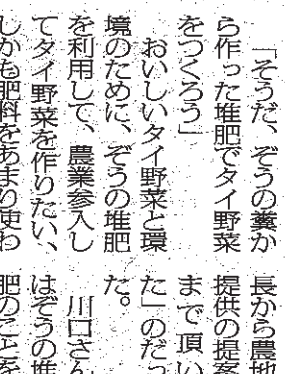 「そうだ、ぞうの糞か
ら作った堆肥でタイ野菜
をつくろう」
おいしいタイ野菜と環
境のために、ぞうの堆肥
を利用して、農業参入し
てタイ野菜を作りたい、
しかも肥料をあまり使わ
長から農地
提供の提案
まで頂い
た」のだっ
た。
川口さん
はぞうの堆
肥のことを